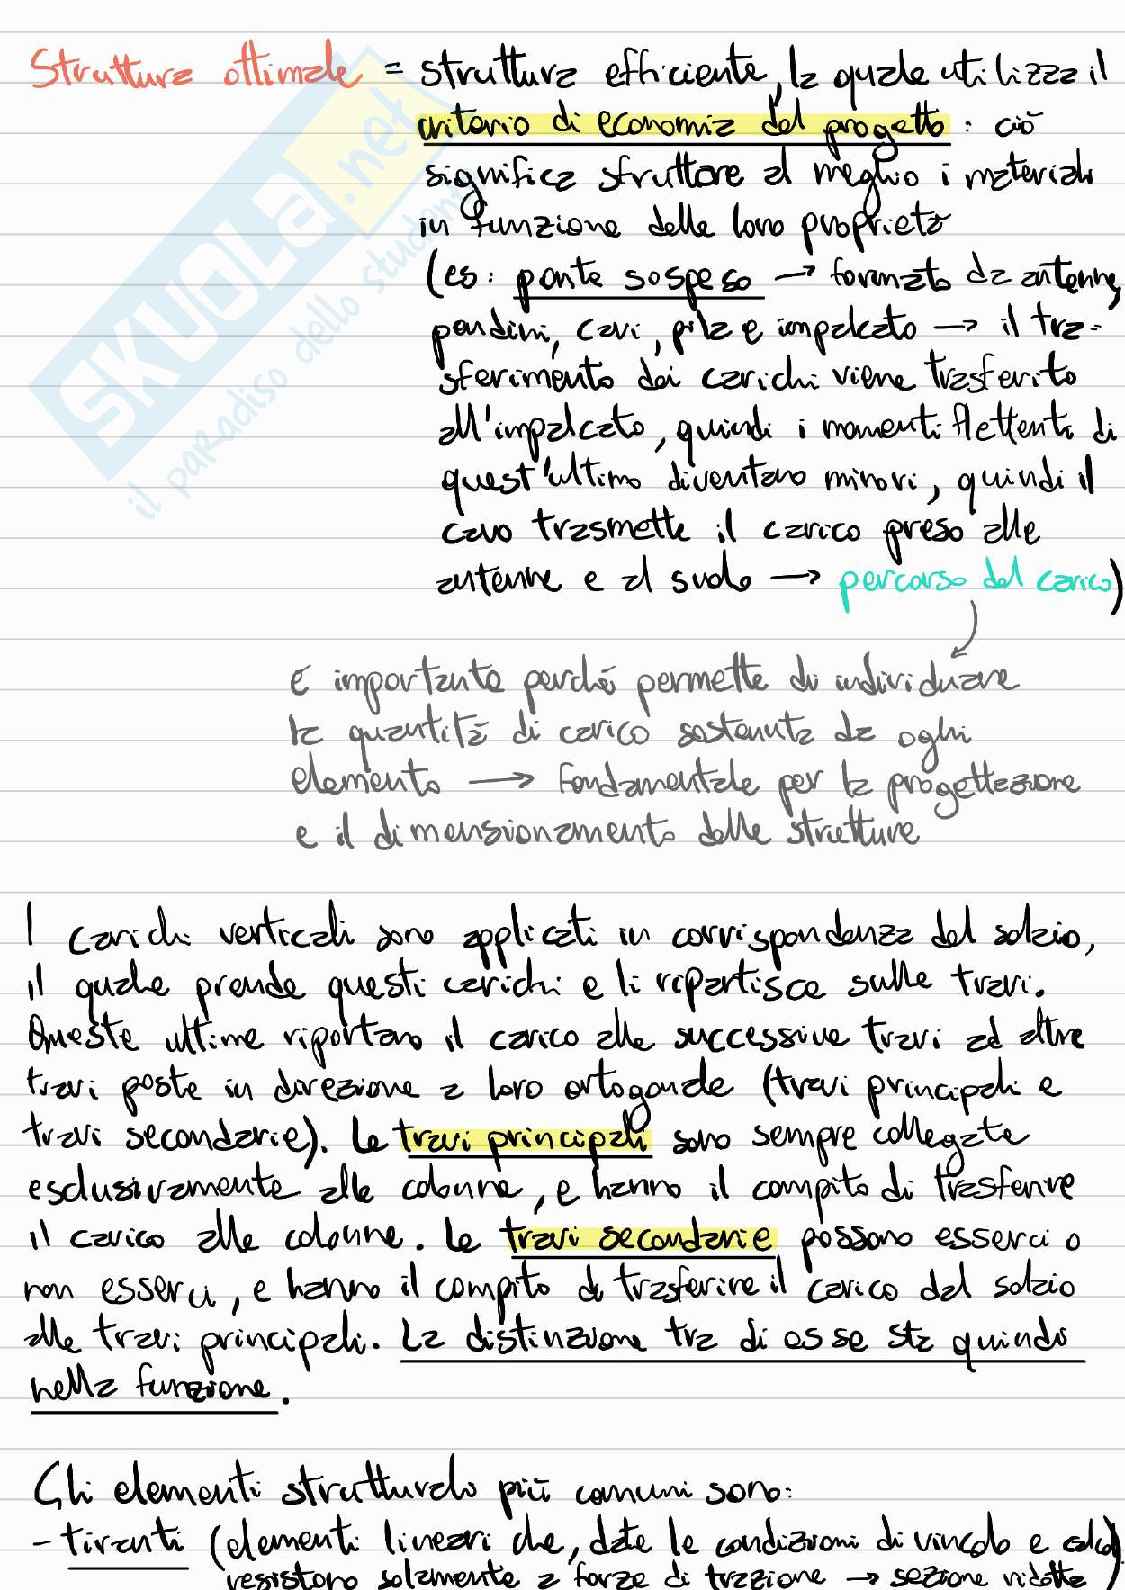 Struttura ottimale = struttura efficiente, la quale utilizza il
criterio di economia del progetto: ciò
significa sfruttare al meglio i materiali
in funzione delle loro proprietà
(es: ponte sospeso → formato da antenne,
pendini, cavi, pila e impalcato → il tra-
sferimento dei carichi viene trasferito
all'impalcato, quindi i momenti flettenti di
quest'ultimo diventano minori, quindi il
cavo trasmette il carico preso alle
antenne e al suolo → percorso del carico)
È importante perché permette di individuare
la quantità di carico sostenuta da ogni
elemento → fondamentale per la progettazione
e il dimensionamento delle strutture
I carichi verticali sono applicati in corrispondenza del solaio,
il quale prende questi carichi e li ripartisce sulle travi.
Queste ultime riportano il carico alle successive travi ad altre
travi poste in direzione a loro ortogonale (travi principali e
travi secondarie). Le travi principali sono sempre collegate
esclusivamente alle colonne, e hanno il compito di trasferire
il carico alle colonne. Le travi secondarie possono esserci o
non esserci, e hanno il compito di trasferire il carico dal solaio
alle travi principali. La distinzione tra di esse sta quindi
nella funzione.
Gli elementi strutturali più comuni sono:
- tiranti (elementi lineari che, date le condizioni di vincolo e
resistono solamente a forze di trazione → sezione ridotta)
SKUOLA.net
il paradiso dello studente